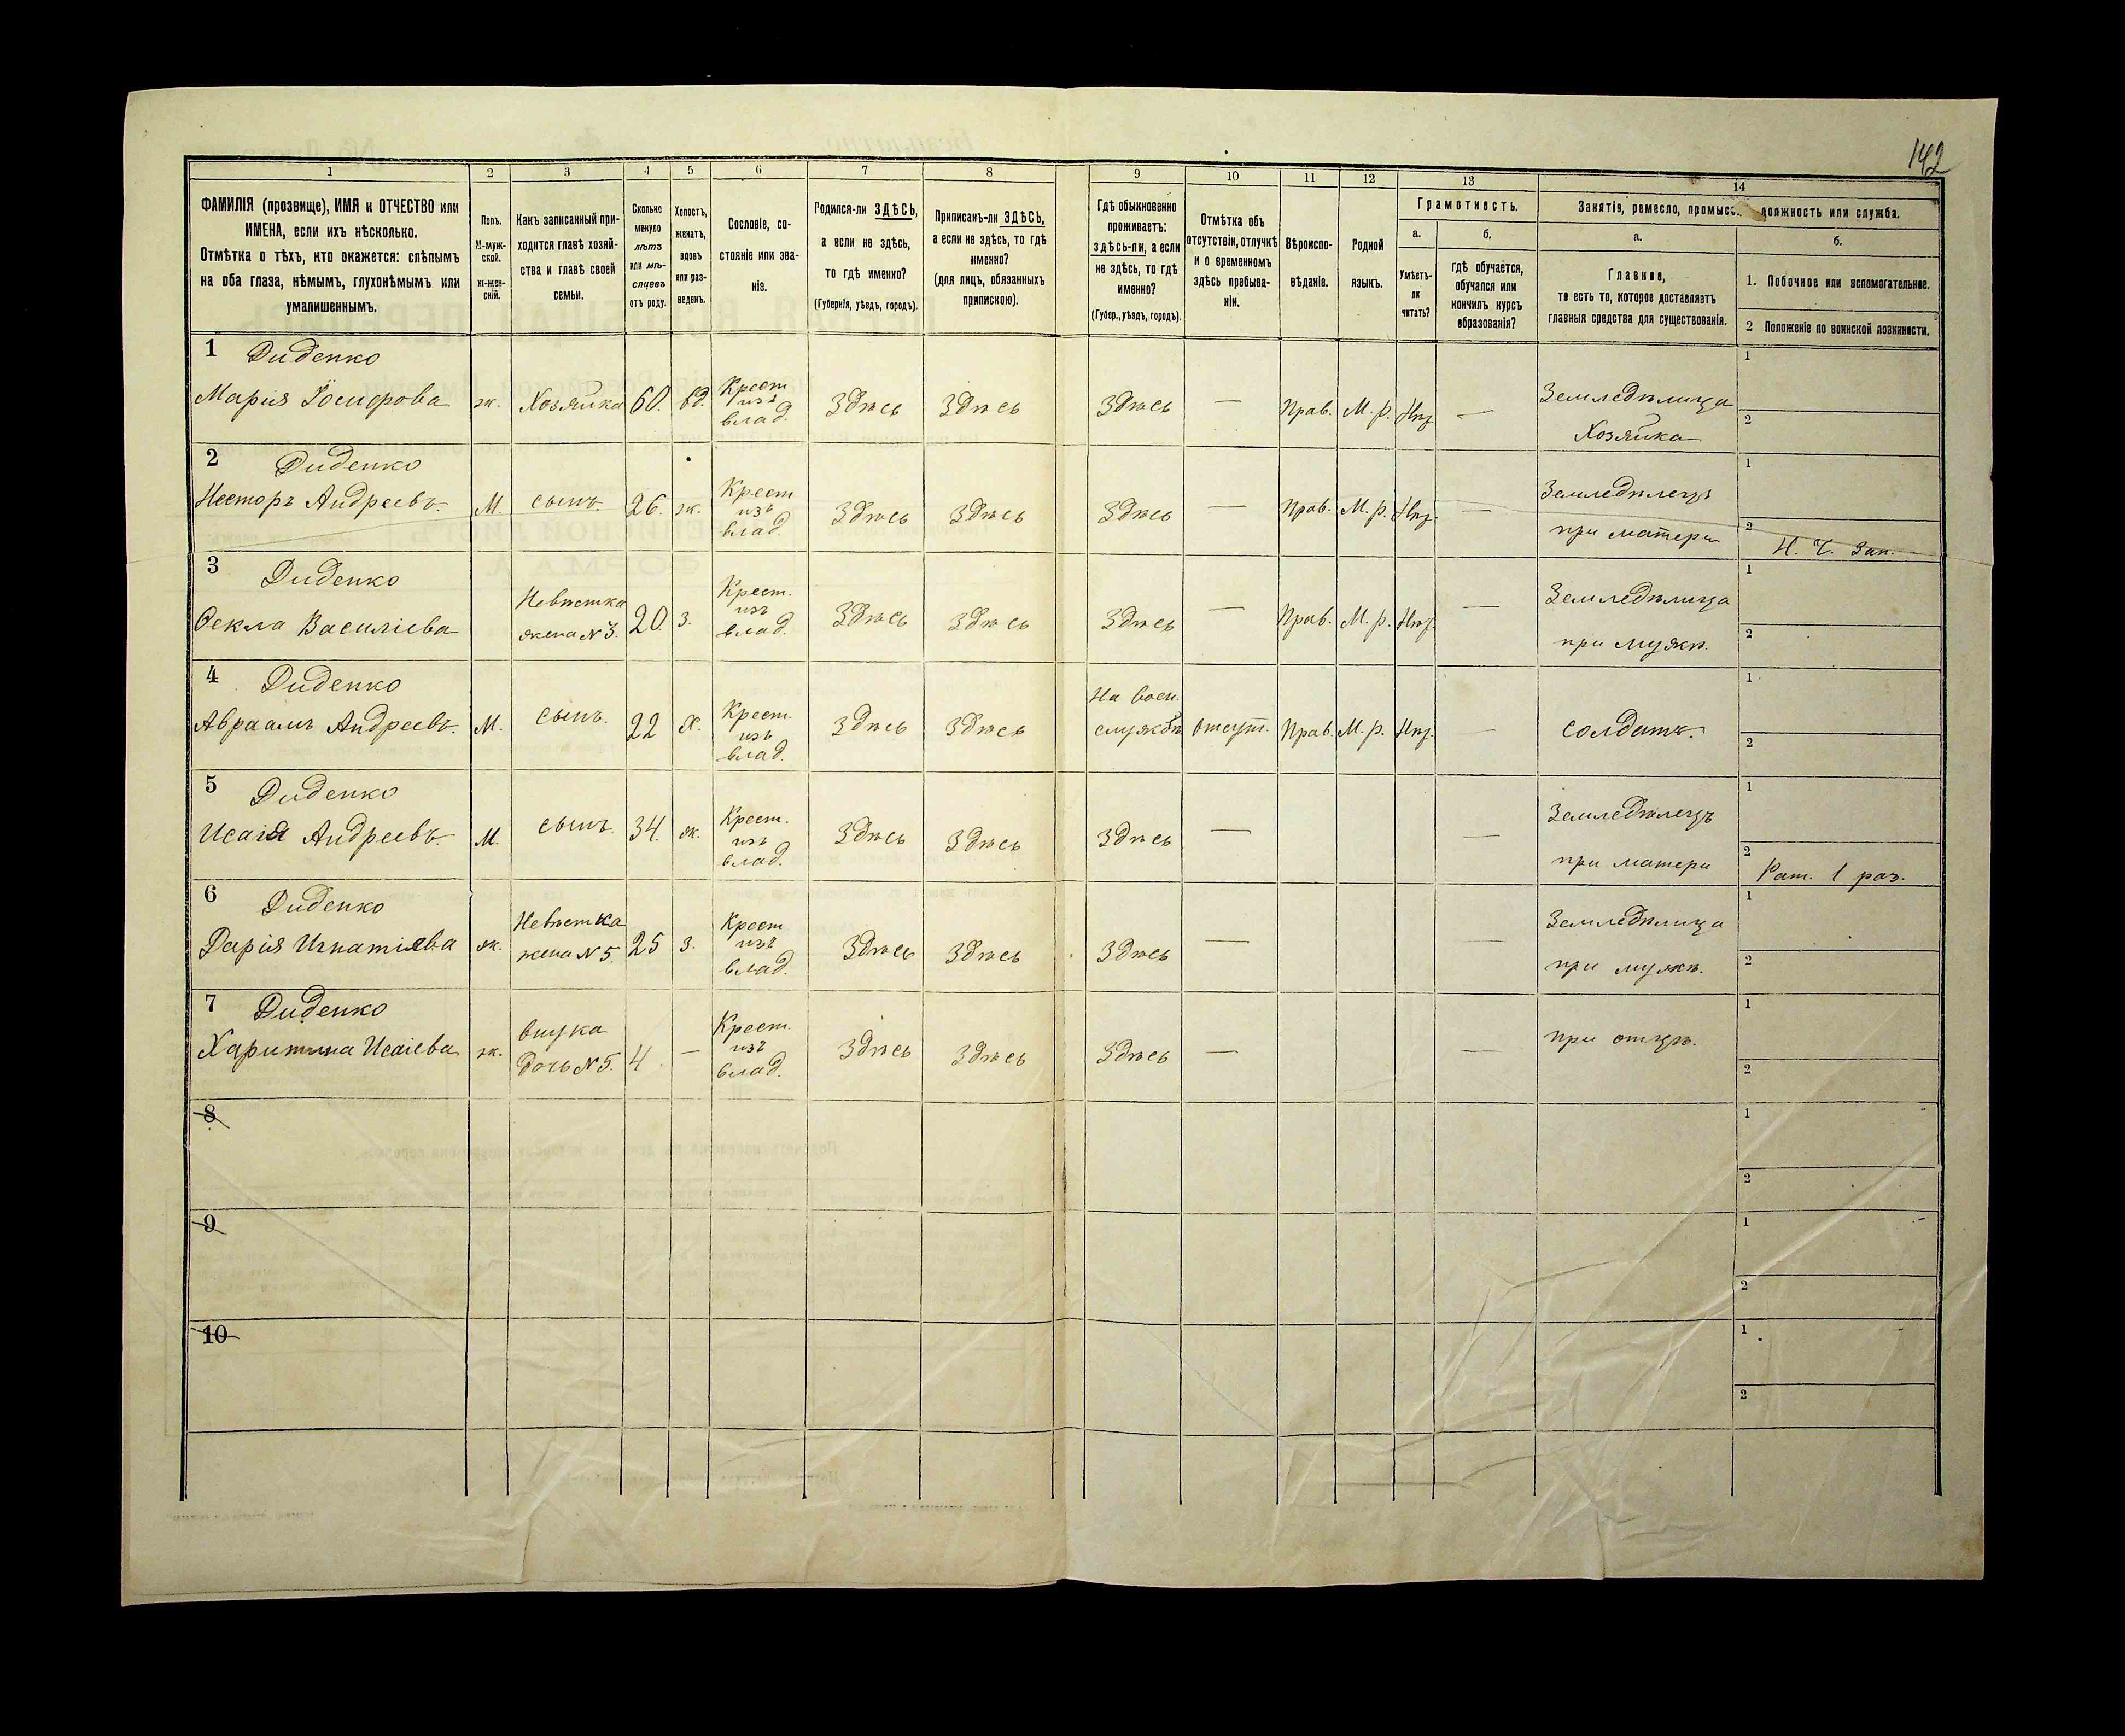 142
1 2 3 4 5 6 7 8 9 10 11 12 13 14
ФАМИЛІЯ (прозвище), ИМЯ и ОТЧЕСТВО или
ИМЕНА, если ихъ нѣсколько.
Отмѣтка о тѣхъ, кто окажется: слѣпымъ
на оба глаза, нѣмымъ, глухонѣмымъ или
умалишеннымъ.
Полъ.
М-муж-
ской.
ж-жен-
скій.
Какъ записанный при-
ходится главѣ хозяй-
ства и главѣ своей
семьи.
Сколько
минуло
лѣтъ
или мѣ-
сяцевъ
отъ роду.
Холостъ,
женатъ,
вдовъ
или раз-
веденъ.
Сословіе, со-
стояніе или зва-
ніе.
Родился-ли ЗДѢСЬ,
а если не здѣсь,
то гдѣ именно?
(Губернія, уѣздъ, городъ).
Приписанъ-ли ЗДѢСЬ,
а если не здѣсь, то гдѣ
именно?
(для лицъ, обязанныхъ
припискою).
Гдѣ обыкновенно
проживаетъ:
здѣсь-ли, а если
не здѣсь, то гдѣ
именно?
(Губер., уѣздъ, городъ).
Отмѣтка объ
отсутствіи, отлучкѣ
и о временномъ
здѣсь пребыва-
ніи.
Вѣроиспо-
вѣданіе.
Родной
языкъ.
Грамотность.
а.
Умѣетъ-
ли
читать?
б.
гдѣ обучается,
обучался или
кончилъ курсъ
образованія?
Занятія, ремесло, промыс должность или служба.
а.
Главное,
то есть то, которое доставляетъ
главныя средства для существованія.
б.
1. Побочное или вспомогательное.
2 Положеніе по воинской повинности.
1 Диденко
Марія ж. Хозяйка 60. вд. Крест изъ влад. Здѣсь Здѣсь Здѣсь — Прав. М. р. —
Земледѣлица
Хозяйка
1
2
2 Диденко
Несторъ Андреевъ. М. сынъ. 26. ж. Крест изъ влад. Здѣсь Здѣсь Здѣсь — Прав. М. р. —
Земледѣлецъ
при матери
1
2 Н. Ч. Зап.
3 Диденко
Ѳекла Василіева Невѣстка жена № 3. 20. з. Крест. изъ влад. Здѣсь Здѣсь Здѣсь — Прав. М. р. —
Земледѣлица
при мужѣ.
1
2
4 Диденко
Авраамъ Андреевъ. М. сынъ. 22 Х. Крест. изъ влад. Здѣсь Здѣсь На воен. службѣ Отсут. Прав. М. р. —
солдатъ.
1
2
5 Диденко
Исаія Андреевъ. М. сынъ. 34. ж. Крест. изъ влад. Здѣсь Здѣсь Здѣсь — —
Земледѣлецъ
при матери
1
2 Рат. 1 раз.
6 Диденко
Дарія Игнатіева ж. Невѣстка жена № 5. 25 з. Крест изъ влад. Здѣсь Здѣсь Здѣсь — —
Земледѣлица
при мужѣ.
1
2
7 Диденко
Харитина Исаіева ж. внука дочь № 5. 4 — Крест. изъ влад. Здѣсь Здѣсь Здѣсь — —
при отцѣ.
1
2
8
1
2
9
1
2
10
1
2